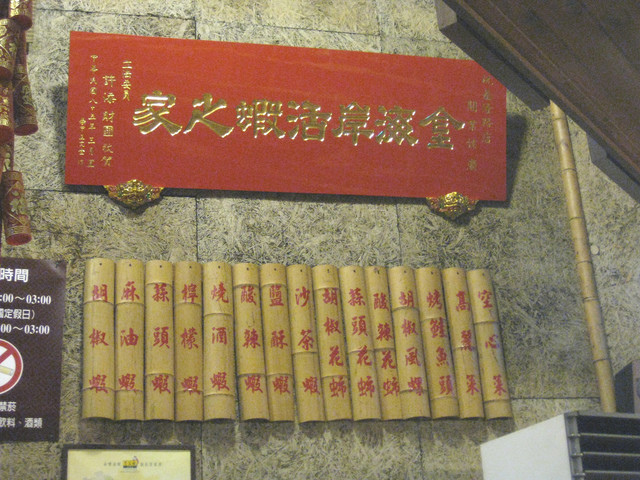 開業誌慶
金瀛岸活蝦之家
立法委員
許添財 敬賀
空心菜
高麗菜
烤鮭魚頭
胡椒鳳螺
酸辣花
蒜頭花
胡椒花
沙茶蝦
鹽酥蝦
酸辣蝦
燒酒蝦
檸檬蝦
蒜頭蝦
麻油蝦
胡椒蝦
時間
:00～03:00
國定假日）
00～03:00
禁菸
飲料、酒類